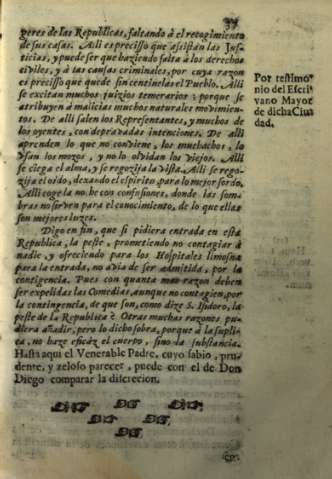 37
geres de las Republicas, faltando à el retogimiento
de sus casas. Alli es precisso que assistan las Jus-
ticias, y puede ser que haziendo falta à los derechos
civiles, y à las causas criminales, por cuya razon
es precisso que quede sin centinelas el Pueblo. Alli
se excitan muchos juizios temerarios: porque se
atribuyen à malicias muchos naturales movimien-
tos. De alli salen los Representantes, y muchos de
los oyentes, con depravadas intenciones. De alli
aprenden lo que no conviene, los muchachos, lo
vsan los mozos, y no lo olvidan los viejos. Alli
se ciega el alma, y se regozija la vista. Alli se rego-
zija el oìdo, dexando el espiritu para lo mejor sordo.
Alli coge la noche con confusiones, donde las som-
bras no sirven para el conocimiento, de lo que ellas
son mejores luzes.
Digo en fin, que si pidiera entrada en esta
Republica, la peste, prometiendo no contagiar à
nadie, y ofreciendo para los Hospitales limosna
para la entrada, no avia de ser admitida, por la
contigencia. Pues con quanta mas razon deben
ser expelidas las Comedias, aunque no contagien, por
la contingencia, de que son, como dize S. Isidoro, la
peste de la Republica? Otras muchas razones pu-
diera añadir, pero lo dicho sobra, porque à la supli-
ca, no haze eficàz el cuerpo, sino la substancia.
Hasta aqui el Venerable Padre, cuyo sabio, pru-
dente, y zeloso parecer, puede con el de Don
Diego comparar la discrecion.
Por testimo-
nio del Escri-
vano Mayor
de dicha Ciu-
dad.